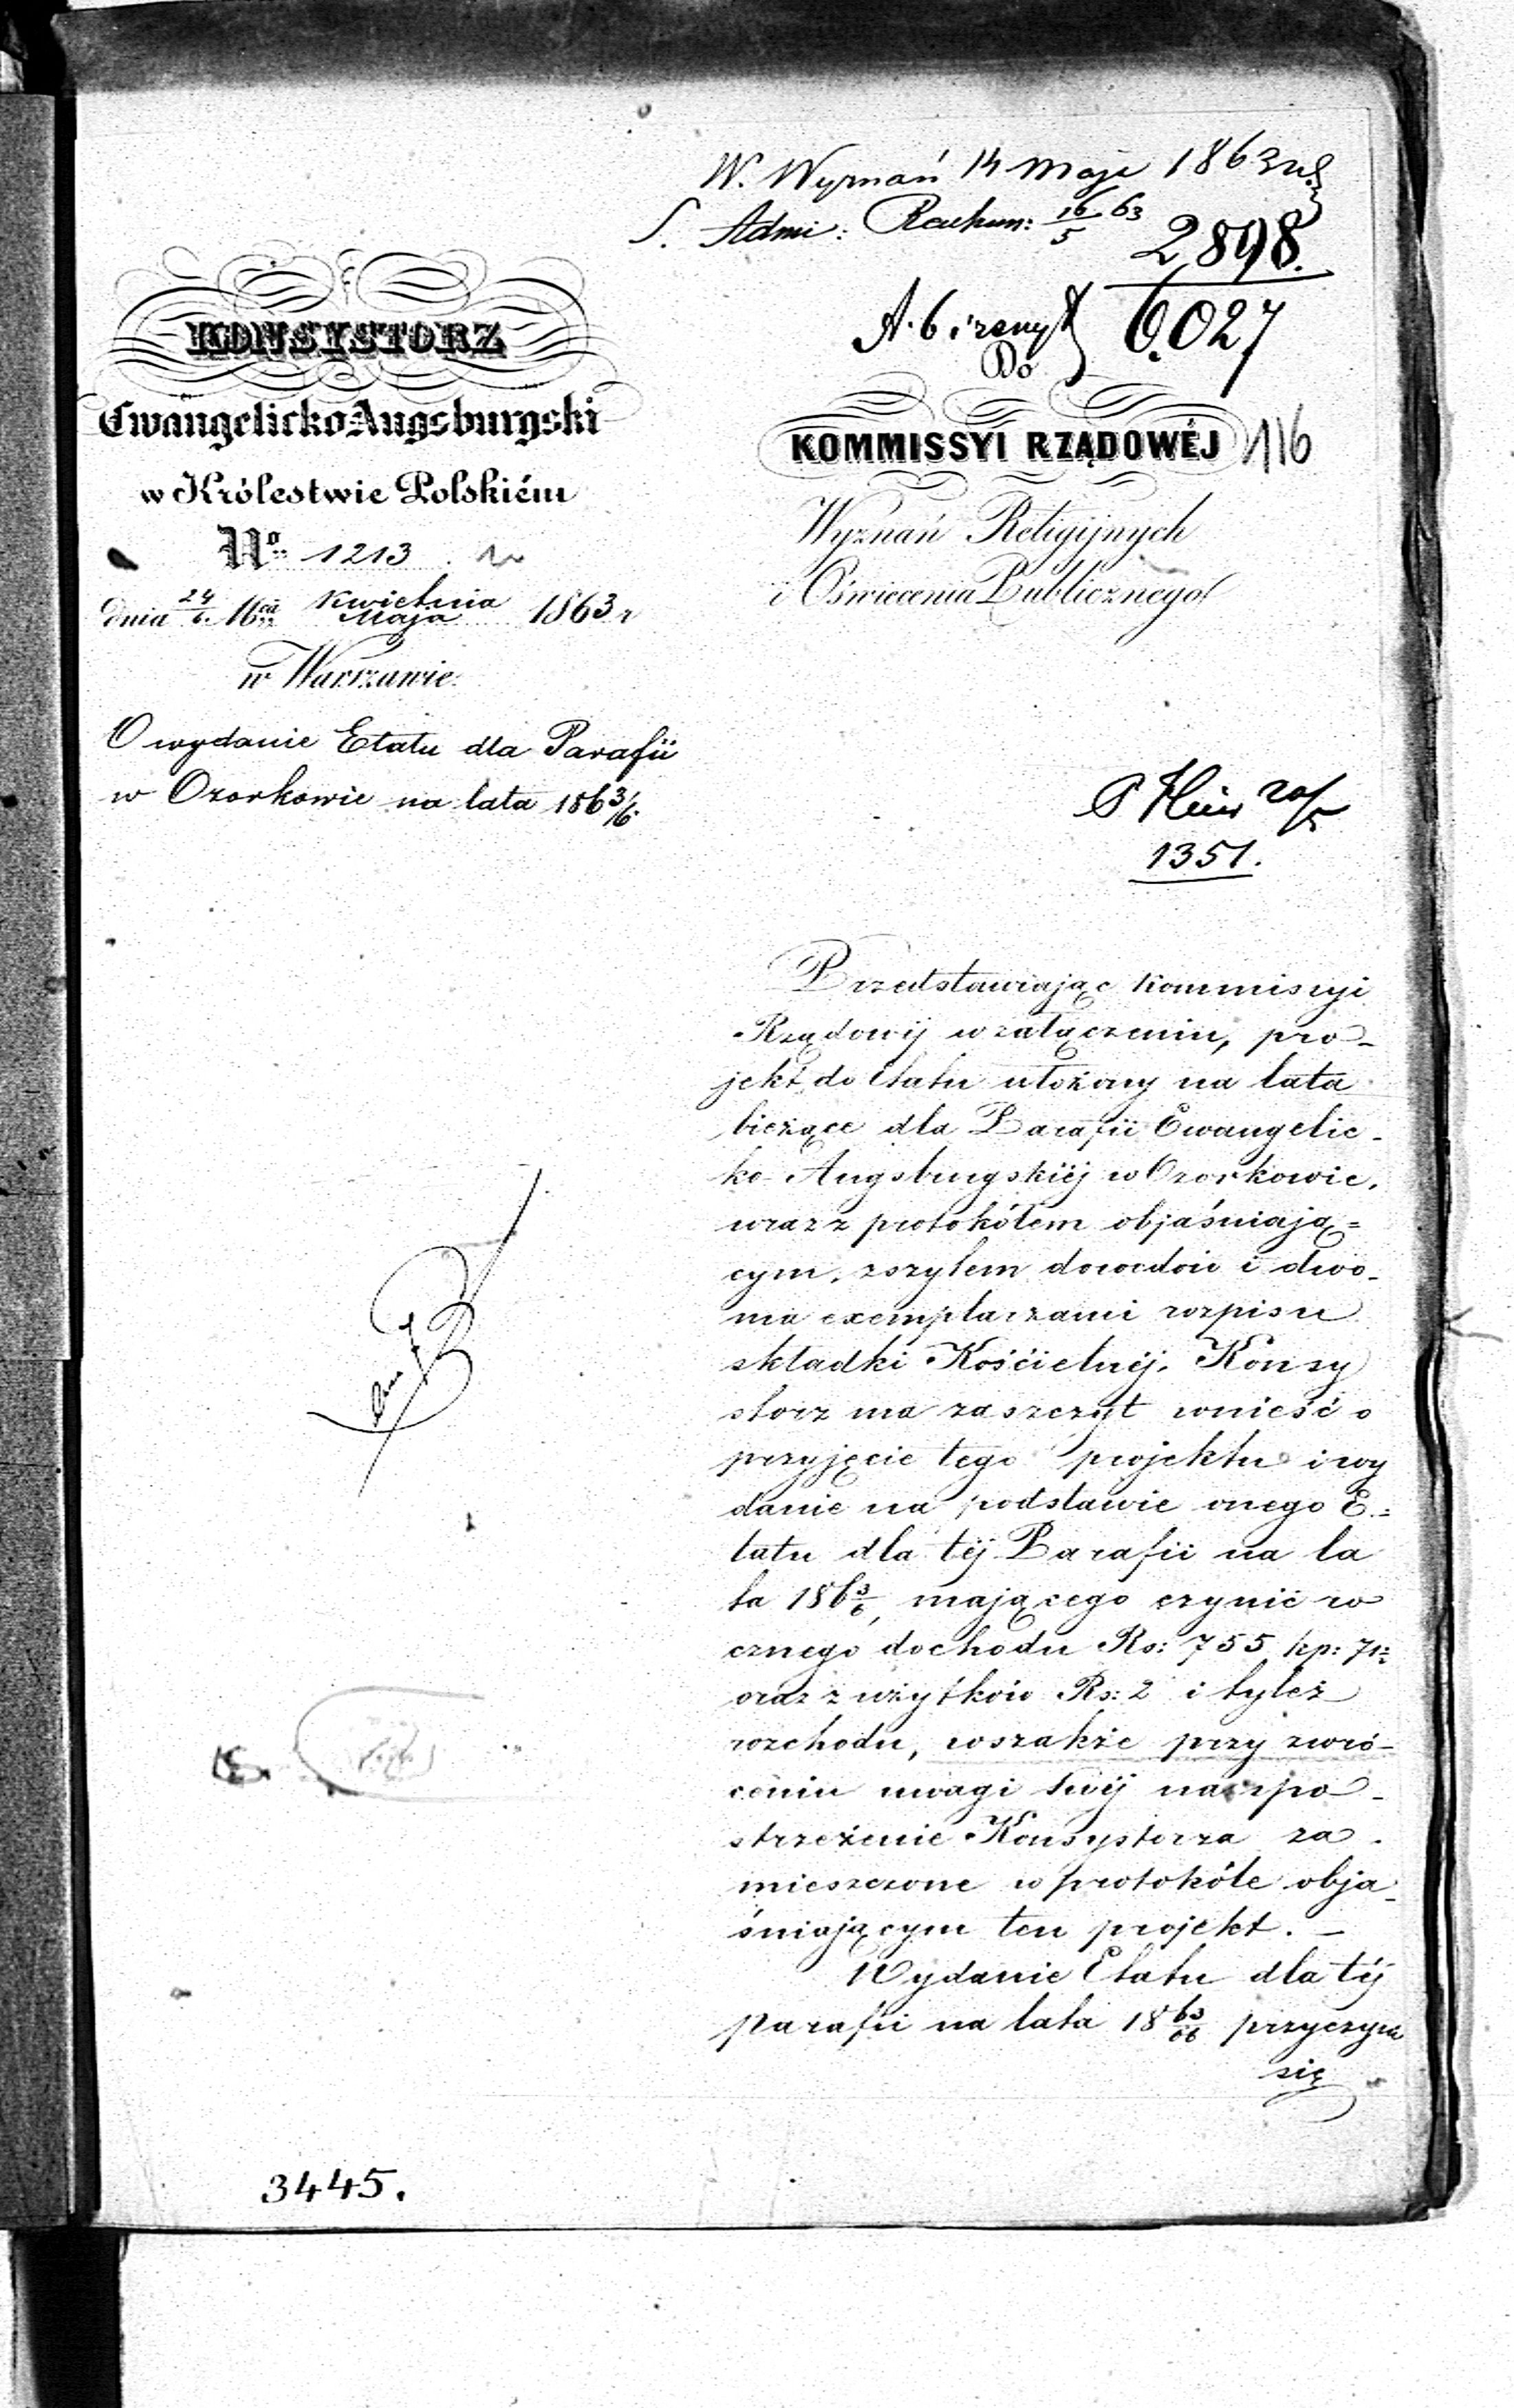 W. Wyznań 14 Maja 1863 r.
S. Admi: Rachun: 16/5 63
2898.
6.027
Do
KONSYSTORZ
Ewangelicko-Augsburgski
w Królestwie Polskiém
No 1213
dnia 24/6. Mca Kwietnia/Maja 1863 r
w Warszawie.
O wydanie Etatu dla Parafii
w Ozorkowie na lata 1863/6.
KOMMISSYI RZĄDOWÉJ 116
Wyznań Religijnych
i Oświecenia Publicznego
20/5
1351.
Przedstawiając Kommissyi
Rządowéj w załączeniu, pro-
jekt do Etatu ułożony na lata
bieżące dla Parafii Ewangelic-
ko-Augsburgskiéj w Ozorkowie,
wraz z protokółem objaśniają=
cym, zszytem dowodów i dwo-
ma exemplarzami rozpisu
składki Kościelnéj, Konsy
storz ma zaszczyt wnieść o
przyjęcie tego projektu i wy
danie na podstawie onego E=
tatu dla téj Parafii na la
ta 1863/6, mającego czynić ro
cznego dochodu Rs: 755 kp: 71½
oraz z użytków Rs: 2 i tyleż
rozchodu, wszakże przy zwró-
ceniu uwagi swéj na spo-
strzeżenie Konsystorza za-
mieszczone w protokóle obja-
śniającym ten projekt. –
Wydanie Etatu dla téj
parafii na lata 1863/66 przyczyni
się
3445.